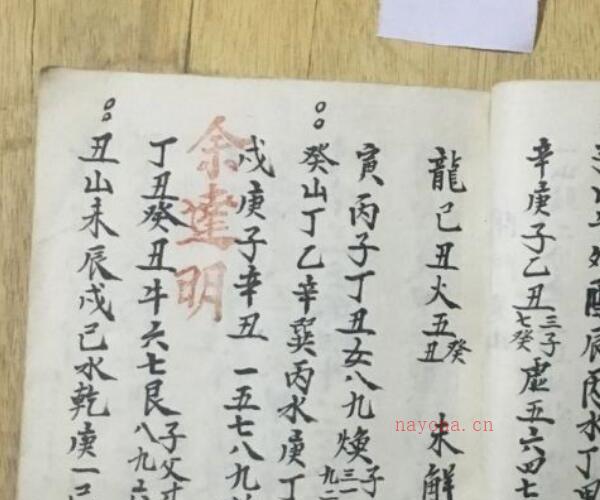 辛庚子乙丑 三子七癸 虚五六四七
龍己丑火五 癸丑 未解
寅丙子丁丑女八九焕 子
癸山丁乙辛巽丙水庚丁
戌庚子辛丑一五七八九
余達明
丁丑癸丑斗六七艮 子父 八九
丑山未辰戌己水乾庚一
nayona.cn